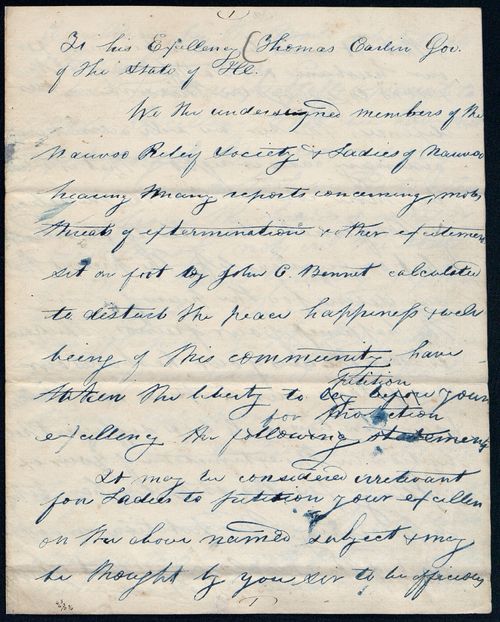 To his Exellency (Thomas Carlin Gov.
of the State of Ill.
We the undersigned members of the
Nauvoo Relief Society & Ladies of Nauvoo
hearing many reports concerning mobs,
threats of extermination & other exitement
set on foot by John C. Bennet calculated
to disturb the peace happiness & well
being of this community, have
Petition
taken the liberty to before your
for Protection
exellency the following statement
It may be considered irrelevant
for Ladies to petition your exellen
on the above named subject & may
be thought by you sir to be officious